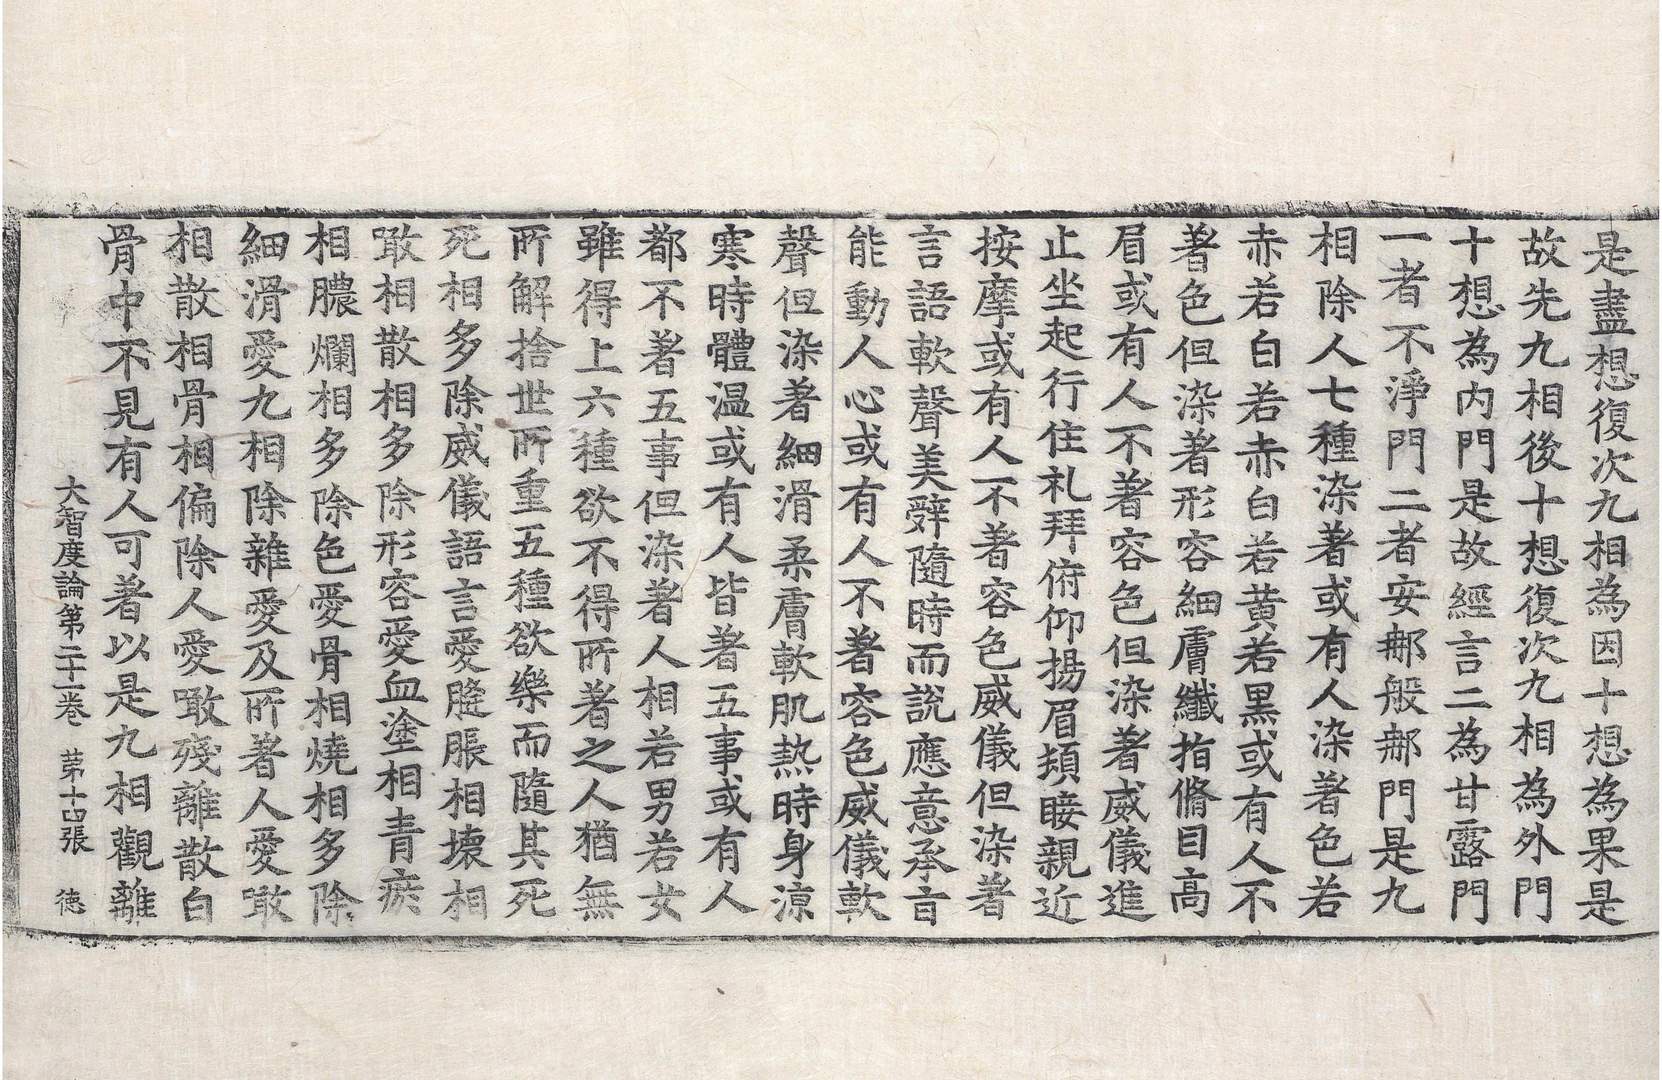 是盡想復次九相為因十想為果是
故先九相後十想復次九相為外門
十想為內門是故經言二為甘露門
一者不淨門二者安那般那門是九
相除人七種染著或有人染著色若
赤若白若赤白若黄若黑或有人不
著色但染著形容細膚纖指脩目高
眉或有人不著容色但染著威儀進
止坐起行住礼拜俯仰揚眉頞睫親近
按摩或有人不著容色威儀但染著
言語軟聲美辝隨時而說應意承旨
能動人心或有人不著容色威儀軟
聲但染著細滑柔膚軟肌熱時身涼
寒時體温或有人皆著五事或有人
都不著五事但染著人相若男若女
雖得上六種欲不得所著之人猶無
所解捨世所重五種欲樂而隨其死
死相多除威儀語言愛膖脹相壞相
噉相散相多除形容愛血塗相青瘀
相膿爛相多除色愛骨相燒相多除
細滑愛九相除雜愛及所著人愛噉
相散相骨相偏除人愛噉殘離散白
骨中不見有人可著以是九相觀離
大智度論第二十一卷 第十四張 徳